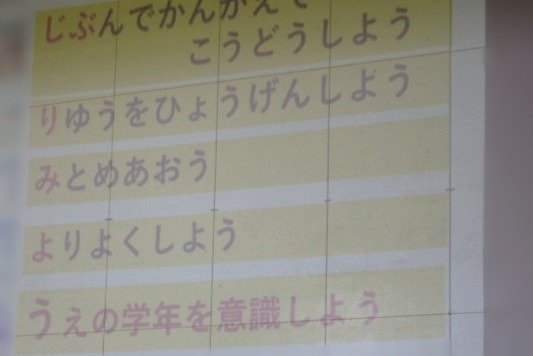 じぶんでかんがえて
こうどうしよう
りゆうをひょうげんしよう
みとめあおう
よりよくしよう
うえの学年を意識しよう